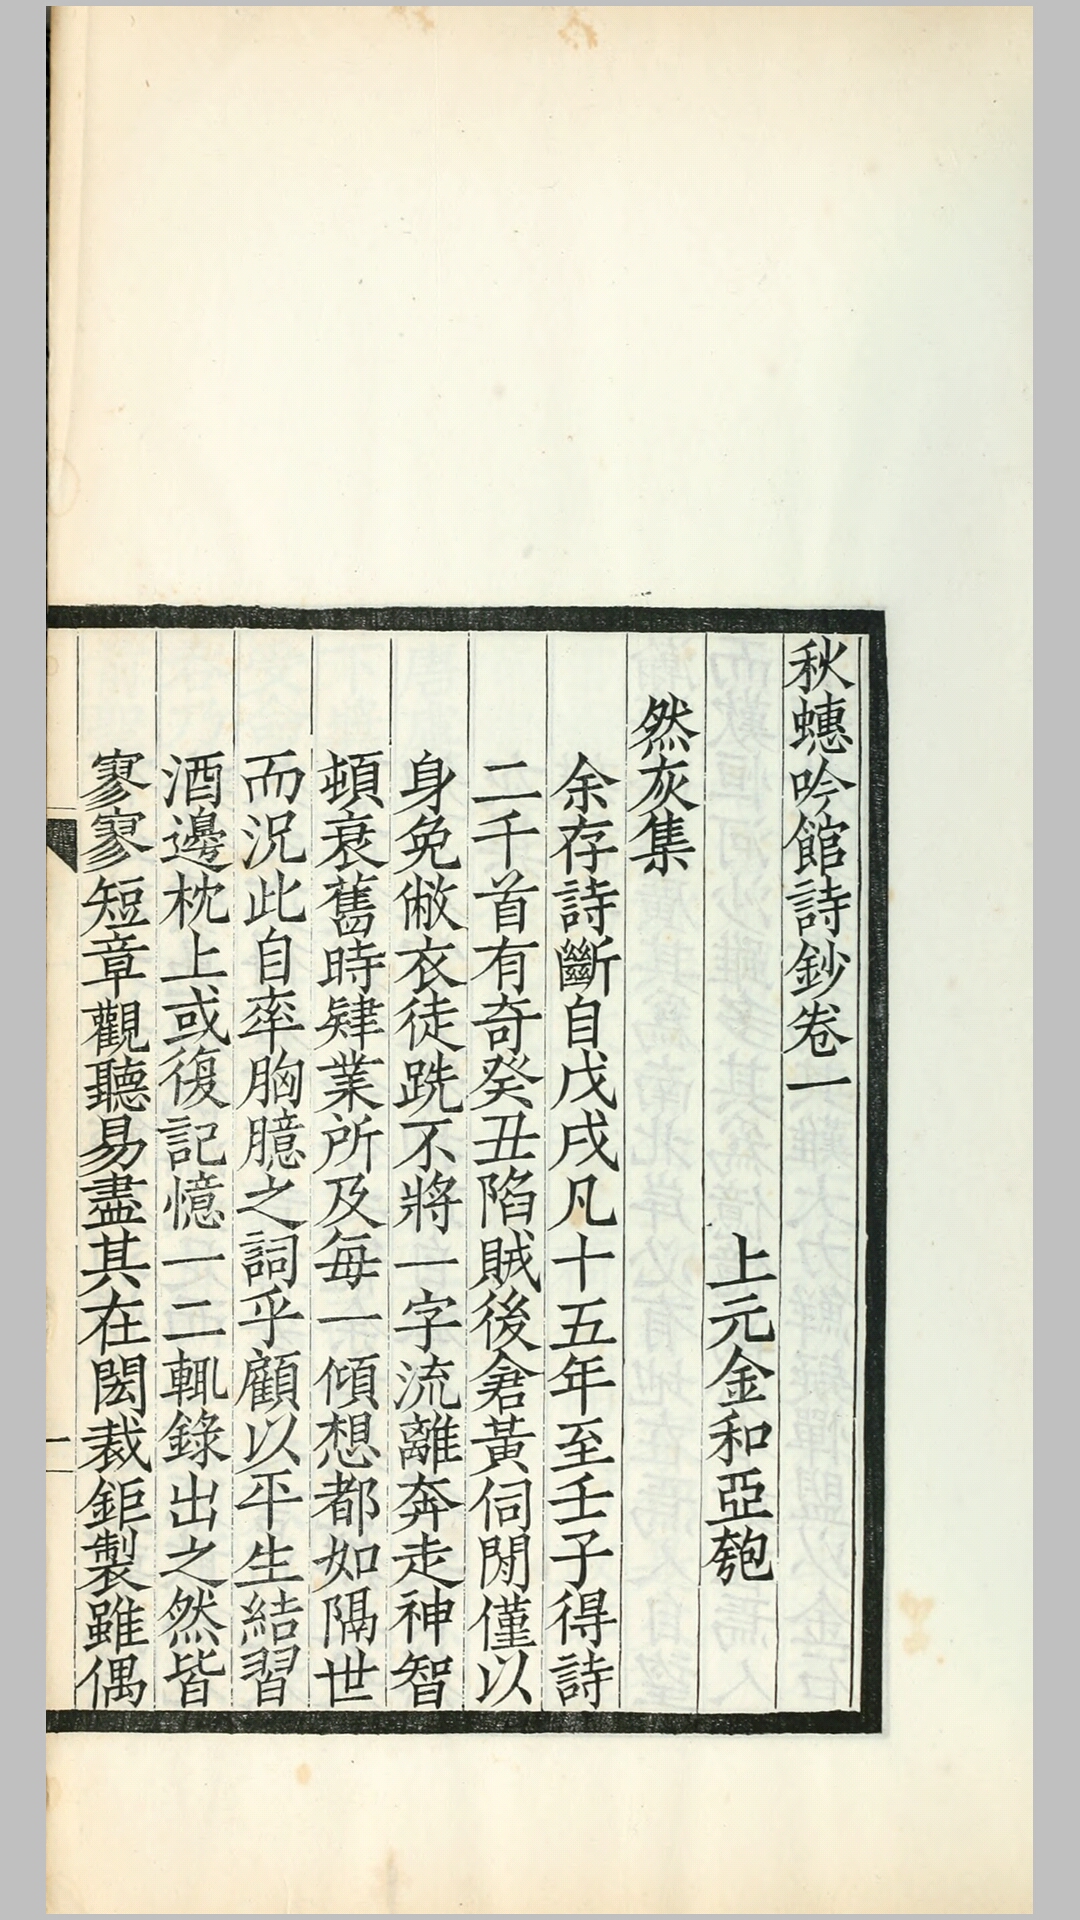 秋蟪吟館詩鈔卷一
上元金和亞匏
然灰集
余存詩斷自戊戌凡十五年至壬子得詩
二千首有奇癸丑陷賊後倉黃伺閒僅以
身免敝衣徒跣不將一字流離奔走神智
頓衰舊時肄業所及每一傾想都如隔世
而況此自率胸臆之詞乎顧以平生結習
酒邊枕上或復記憶一二輒錄出之然皆
寥寥短章觀聽易盡其在閎裁鉅製雖偶
一